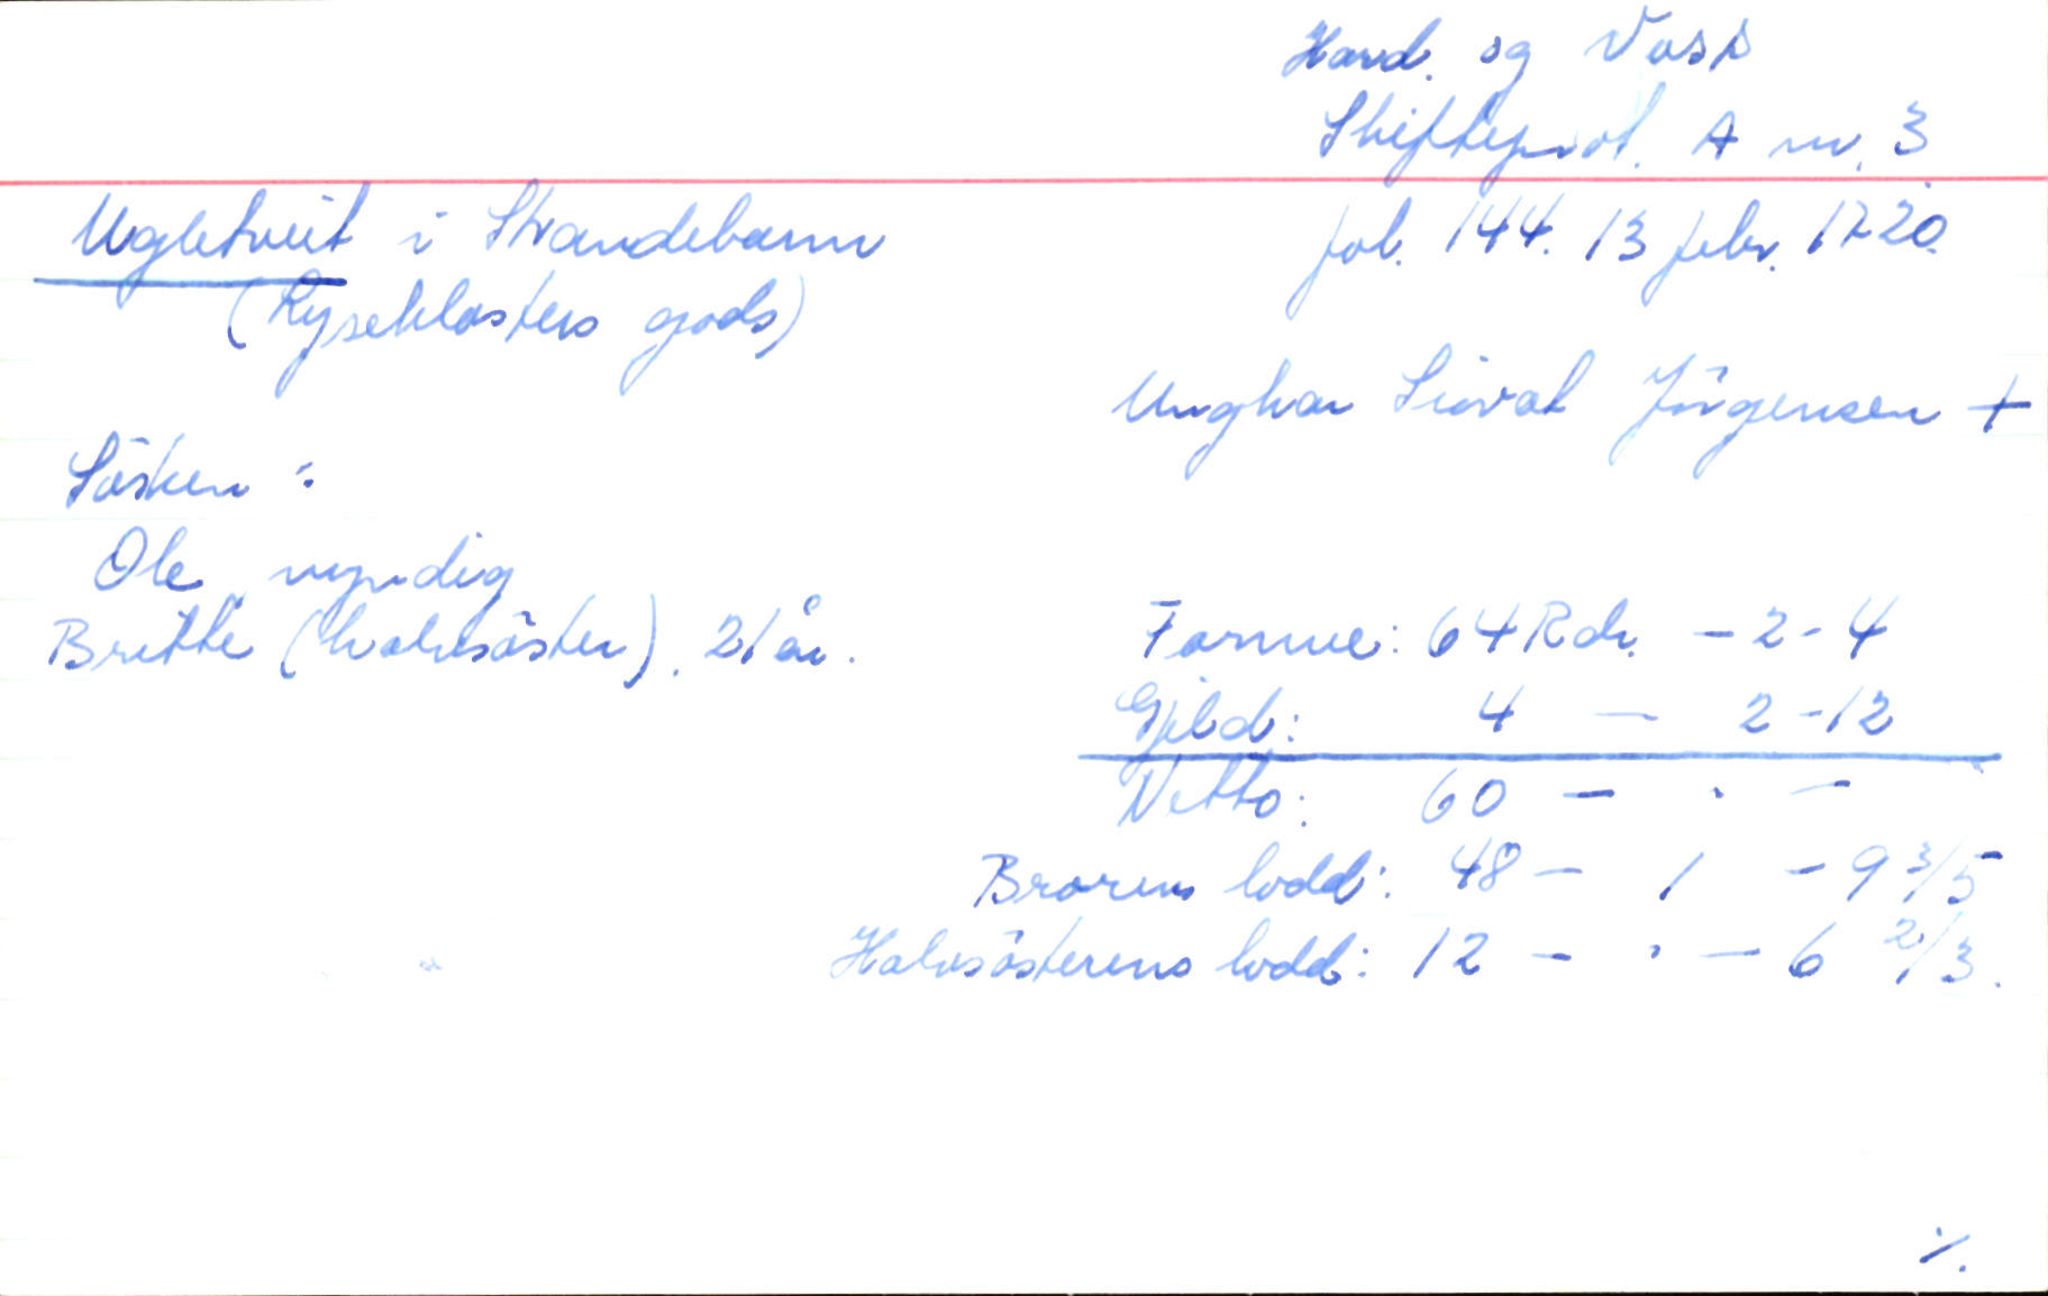 Hard. og Voss
Skifteprot. A nr. 3
Ugletveit i Strandebarm
fol. 144. 13 febr. 1720.
(Lyseklosters gods)
Ungkar Siovat Jörgensen +
Sösken:
Ole, myndig
Britte (halvsöster). 21 år.
Formue: 64 Rdr. - 2 - 4
Gjeld: 4 — 2 - 12
Netto: 60 - . -
Brorens lodd: 48 - 1 - 9 3/5
Halvsösterens lodd: 12 - . - 6 2/3.
./.